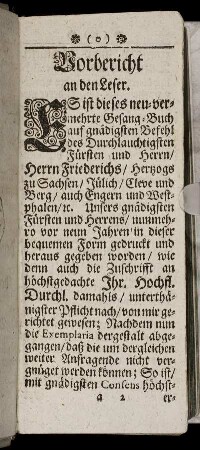 (o)
Vorbericht
an den Leser.
ES ist dieses neu-ver-
mehrte Gesang-Buch
auf gnädigsten Befehl
des Durchlauchtigsten
Fürsten und Herrn/
Herrn Friederichs/ Hertzogs
zu Sachsen/ Jülich/ Cleve und
Berg/ auch Engern und West-
phalen/ ꝛc. Unsers gnädigsten
Fürsten und Herrens/ nunmeh-
ro vor neun Jahren in dieser
bequemen Form gedruckt und
heraus gegeben worden/ wie
denn auch die Zuschrifft an
höchstgedachte Ihr. Hochfl.
Durchl. damahls/ unterthä-
nigster Pflicht nach/ von mir ge-
richtet gewesen; Nachdem nun
die Exemplaria dergestalt abge-
gangen/ daß die um dergleichen
weiter Anfragende nicht ver-
gnüget werden können; So ist/
mit gnädigsten Consens höchst-
a 2 er-